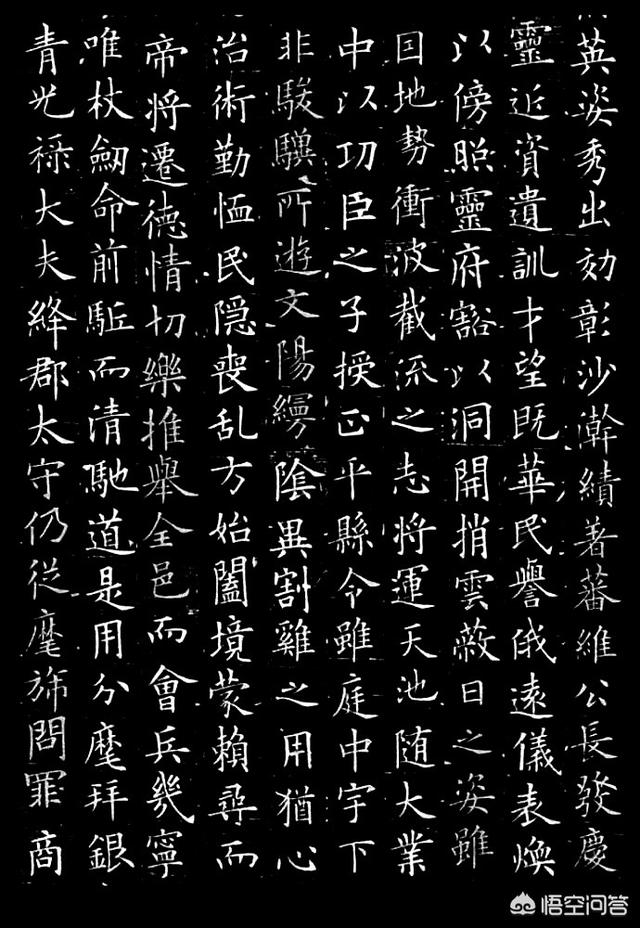 英姿秀出効彰沙漠績著蕃維公長發慶
靈近資遺訓才望既華民譽俄遠儀表煥
以傍照靈府豁以洞開捎雲蔽日之姿雖
因地勢衝波截流之志將運天池随大業
中以功臣之子授正平縣令雖庭中宇下
非駿驥所遊文陽縵陰異割雞之用猶心
治術勤恤民隱喪乱方始闔境蒙賴尋而
帝將遷德情切樂推舉全邑而會兵幾寧
唯杖劒命前駈而清馳道是用分麾拜銀
青光祿大夫絳郡太守仍從麾旆問罪商
悟空问答